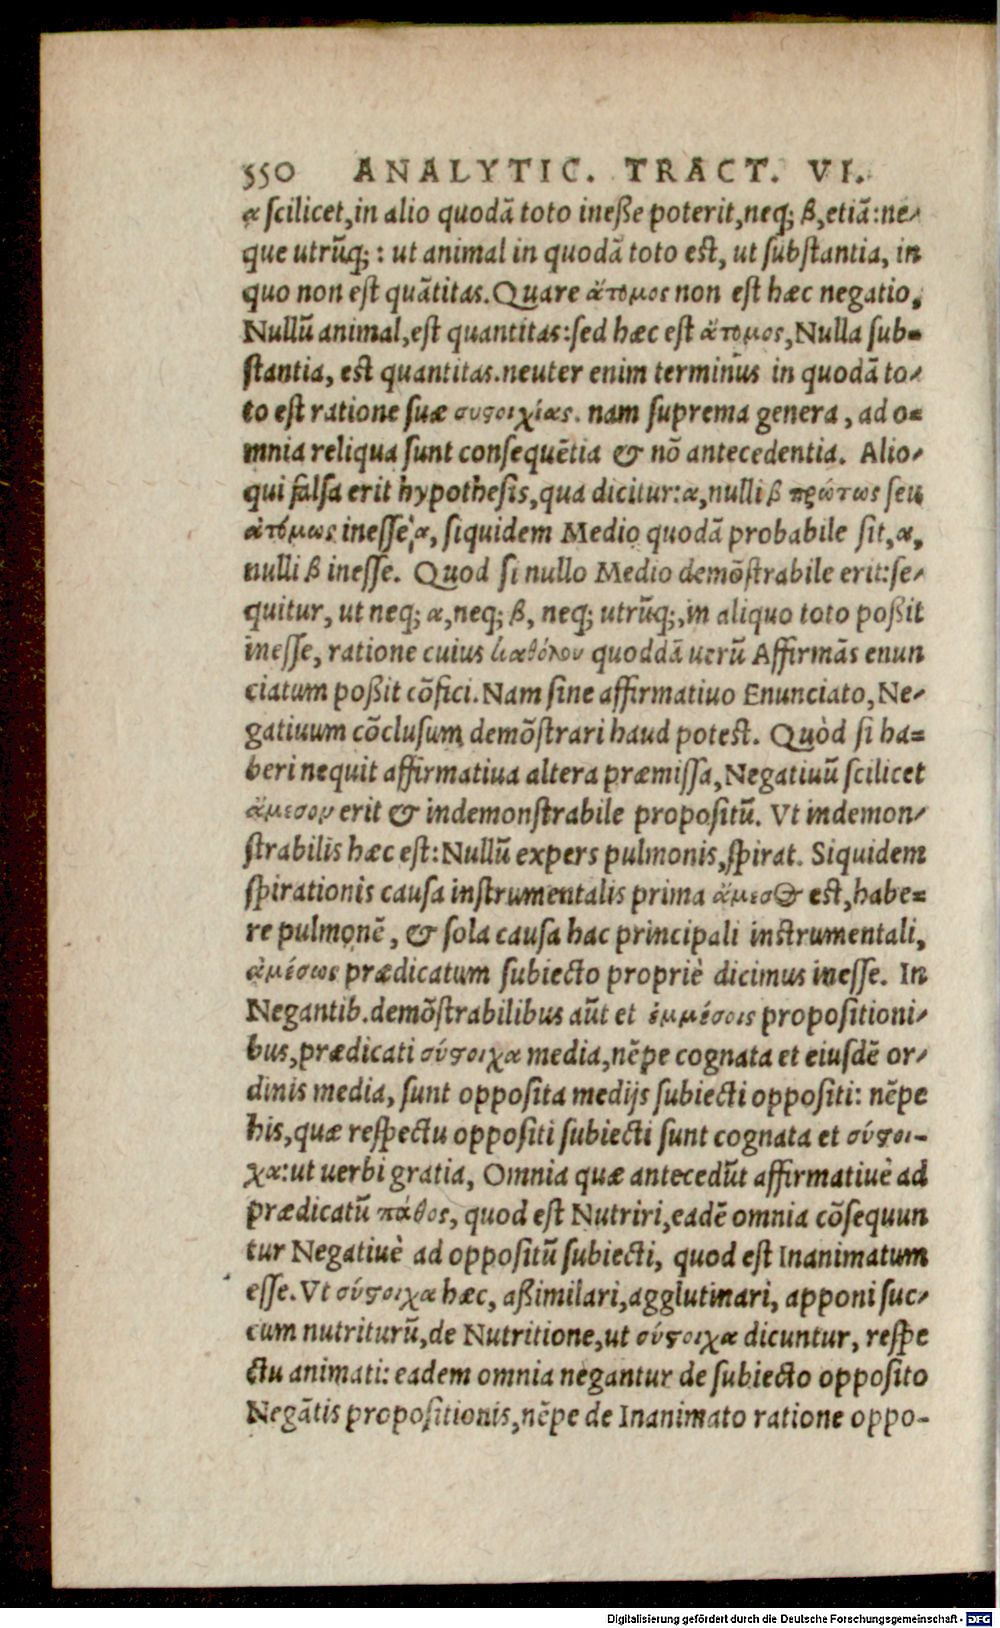 550 ANALYTIC. TRACT. VI.
α scilicet, in alio quodã toto ineße poterit, neq; β, etiã: ne-
que utrũq; : ut animal in quodã toto est, ut substantia, in
quo non est quãtitas. Quare ἄτομος non est hæc negatio,
Nullũ animal, est quantitas: sed hæc est ἄτομος, Nulla sub-
stantia, est quantitas. neuter enim terminus in quodã to-
to est ratione suæ συςοιχίας. nam suprema genera, ad o-
mnia reliqua sunt consequẽtia & nõ antecedentia. Alio-
qui falsa erit hypothesis, qua dicitur: α, nulli β πρώτως seu
ἀτόμως inesse, α, siquidem Medio quodã probabile sit, α,
nulli β inesse. Quod si nullo Medio demõstrabile erit: se-
quitur, ut neq; α, neq; β, neq; utrũq;, in aliquo toto poßit
inesse, ratione cuius διαθόλου quoddã uerũ Affirmãs enun
ciatum poßit cõfici. Nam sine affirmatiuo Enunciato, Ne-
gatiuum cõclusum demõstrari haud potest. Quòd si ha-
beri nequit affirmatiua altera præmissa, Negatiuũ scilicet
ἄμεσον erit & indemonstrabile propositũ. Vt indemon-
strabilis hæc est: Nullũ expers pulmonis, spirat. Siquidem
spirationis causa instrumentalis prima ἄμεσος est, habe-
re pulmonẽ, & sola causa hac principali instrumentali,
ἀμέσως prædicatum subiecto propriè dicimus inesse. In
Negantib. demõstrabilibus aũt et ἐμμέσοις propositioni-
bus, prædicati σύςοιχα media, nẽpe cognata et eiusdẽ or-
dinis media, sunt opposita medijs subiecti oppositi: nẽpe
his, quæ respectu oppositi subiecti sunt cognata et σύςοι-
χα: ut uerbi gratia, Omnia quæ antecedũt affirmatiuè ad
prædicatũ πάθος, quod est Nutriri, eadẽ omnia cõsequun
tur Negatiuè ad oppositũ subiecti, quod est Inanimatum
esse. Vt σύςοιχα hæc, aßimilari, agglutinari, apponi suc-
cum nutriturũ, de Nutritione, ut σύςοιχα dicuntur, respe
ctu animati: eadem omnia negantur de subiecto opposito
Negãtis propositionis, nẽpe de Inanimato ratione oppo-
Digitalisierung gefördert durch die Deutsche Forschungsgemeinschaft - DFG